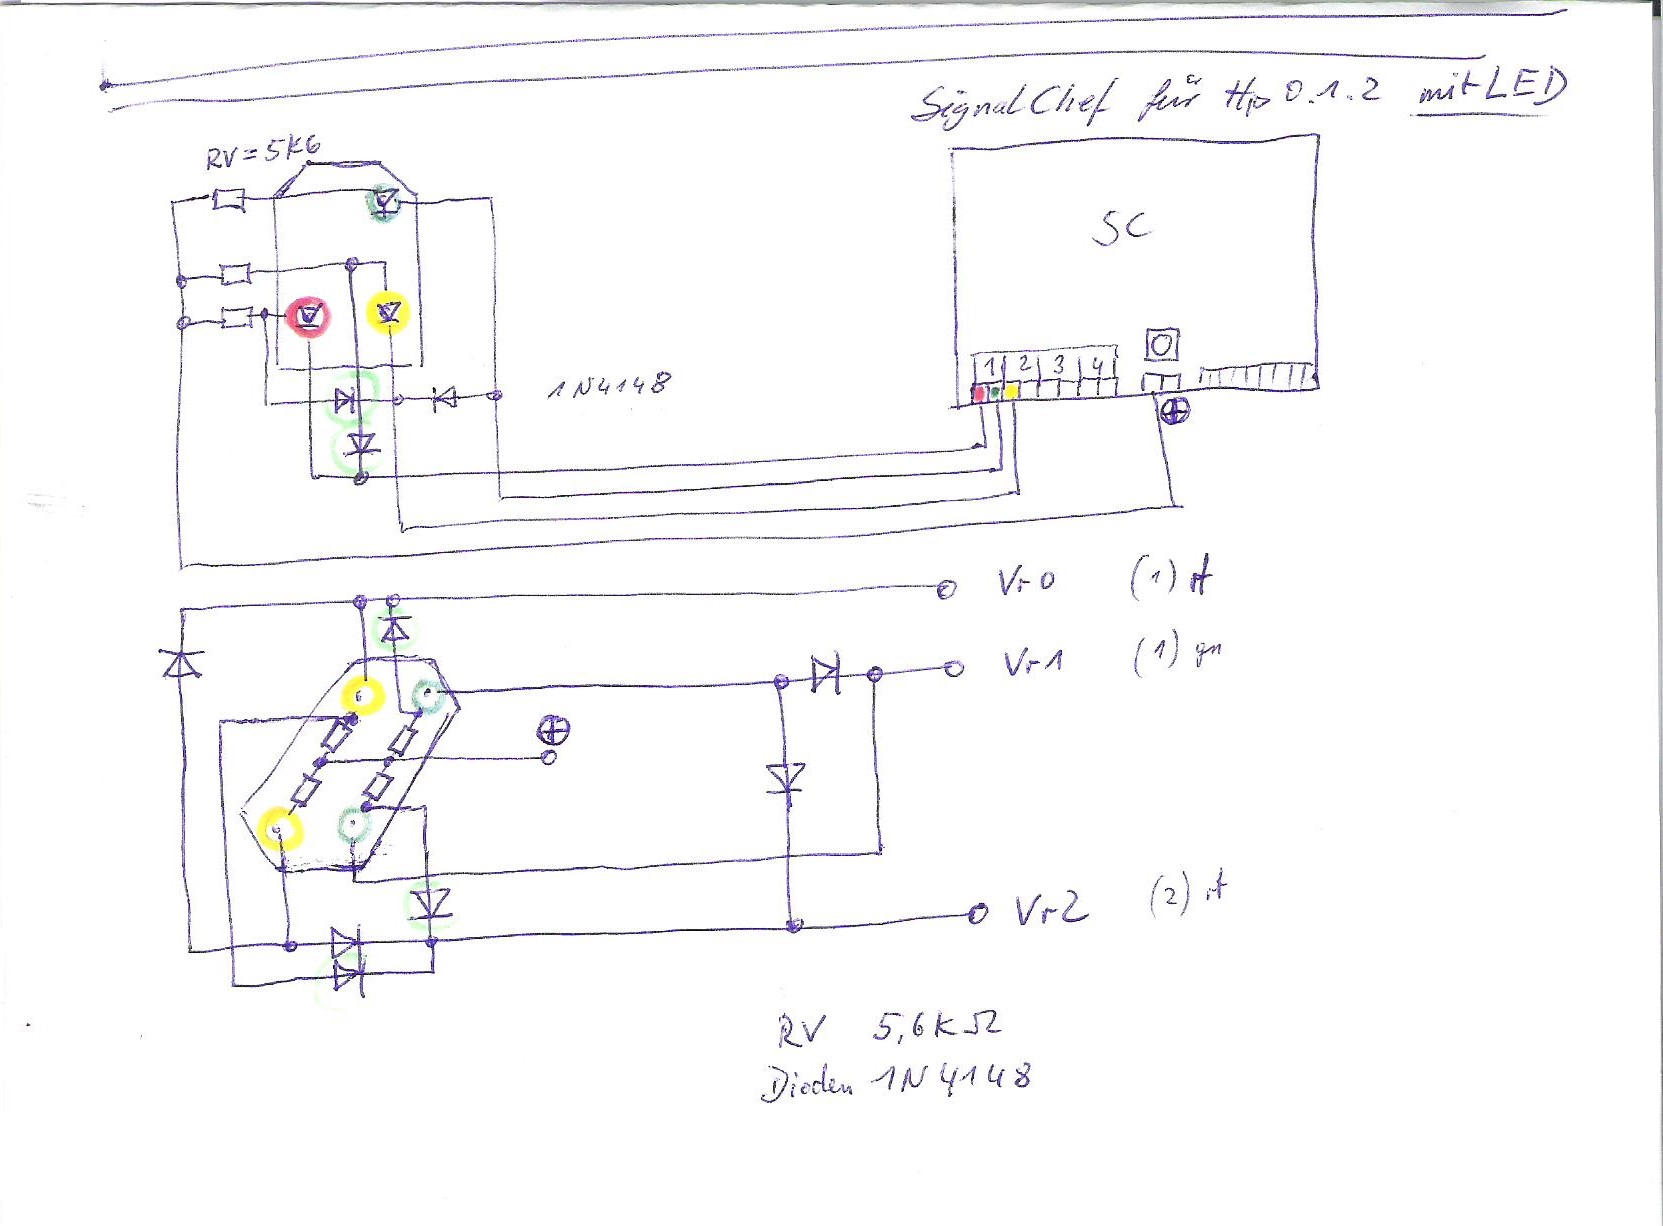 SignalChef für Hp 0.1.2 mit LED
RV = 5K6
SC
1 2 3 4
1N4148
Vr0 (1) rt
Vr1 (1) gn
Vr2 (2) rt
RV 5,6KΩ
Dioden 1N4148